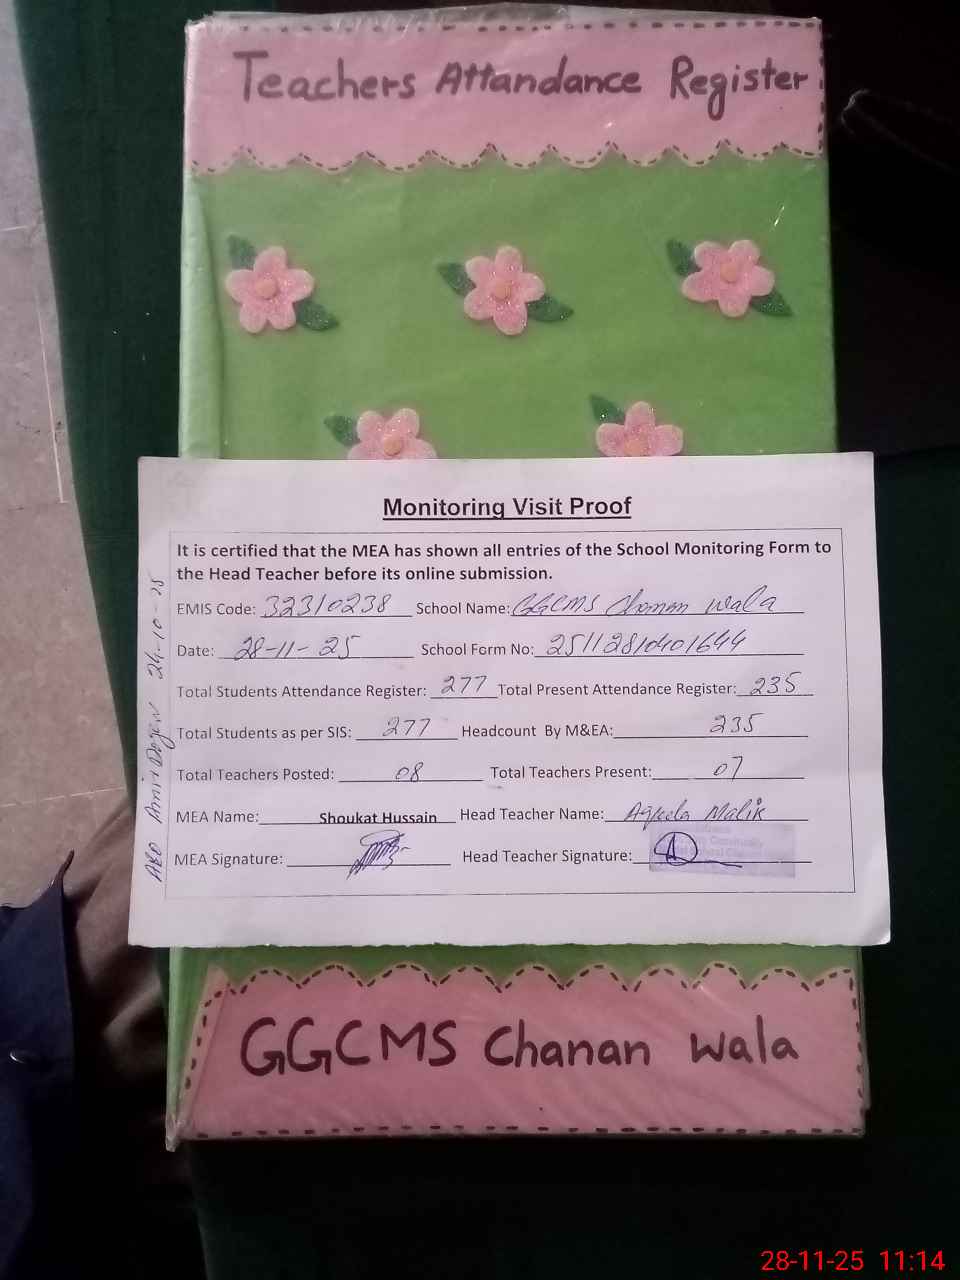 Teachers Attandance Register
Monitoring Visit Proof
It is certified that the MEA has shown all entries of the School Monitoring Form to
the Head Teacher before its online submission.
EMIS Code: 32310238 School Name: GGCMS Chanan wala
Date: 28-11-25 School Form No: 25112810401644
Total Students Attendance Register: 277 Total Present Attendance Register: 235
Total Students as per SIS: 277 Headcount By M&EA: 235
Total Teachers Posted: 08 Total Teachers Present: 07
MEA Name: Shoukat Hussain Head Teacher Name: Aqeela Malik
MEA Signature: Head Teacher Signature:
24-10-25
GGCMS Chanan wala
28-11-25 11:14